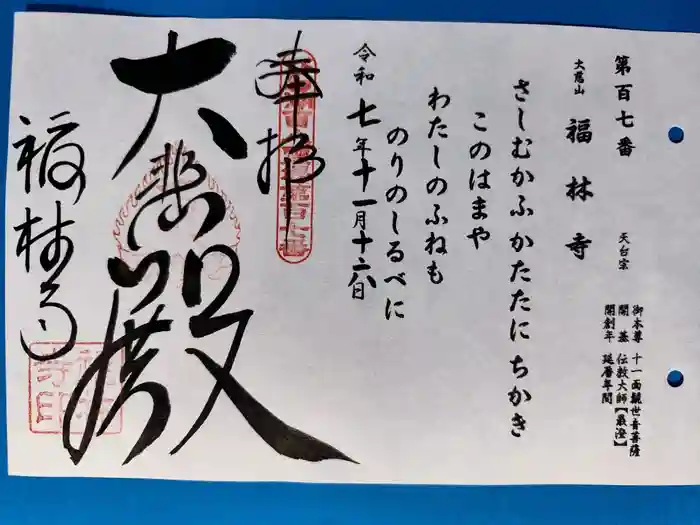 第百七番
天台宗
大慈山
福林寺
御本尊 十一面観世音菩薩
開基 伝教大師【最澄】
開創年 延暦年間
さしむかふかたたにちかき
このはまや
わたしのふねも
のりのしるべに
令和七年十一月十六日
奉拝
大悲殿
福林寺